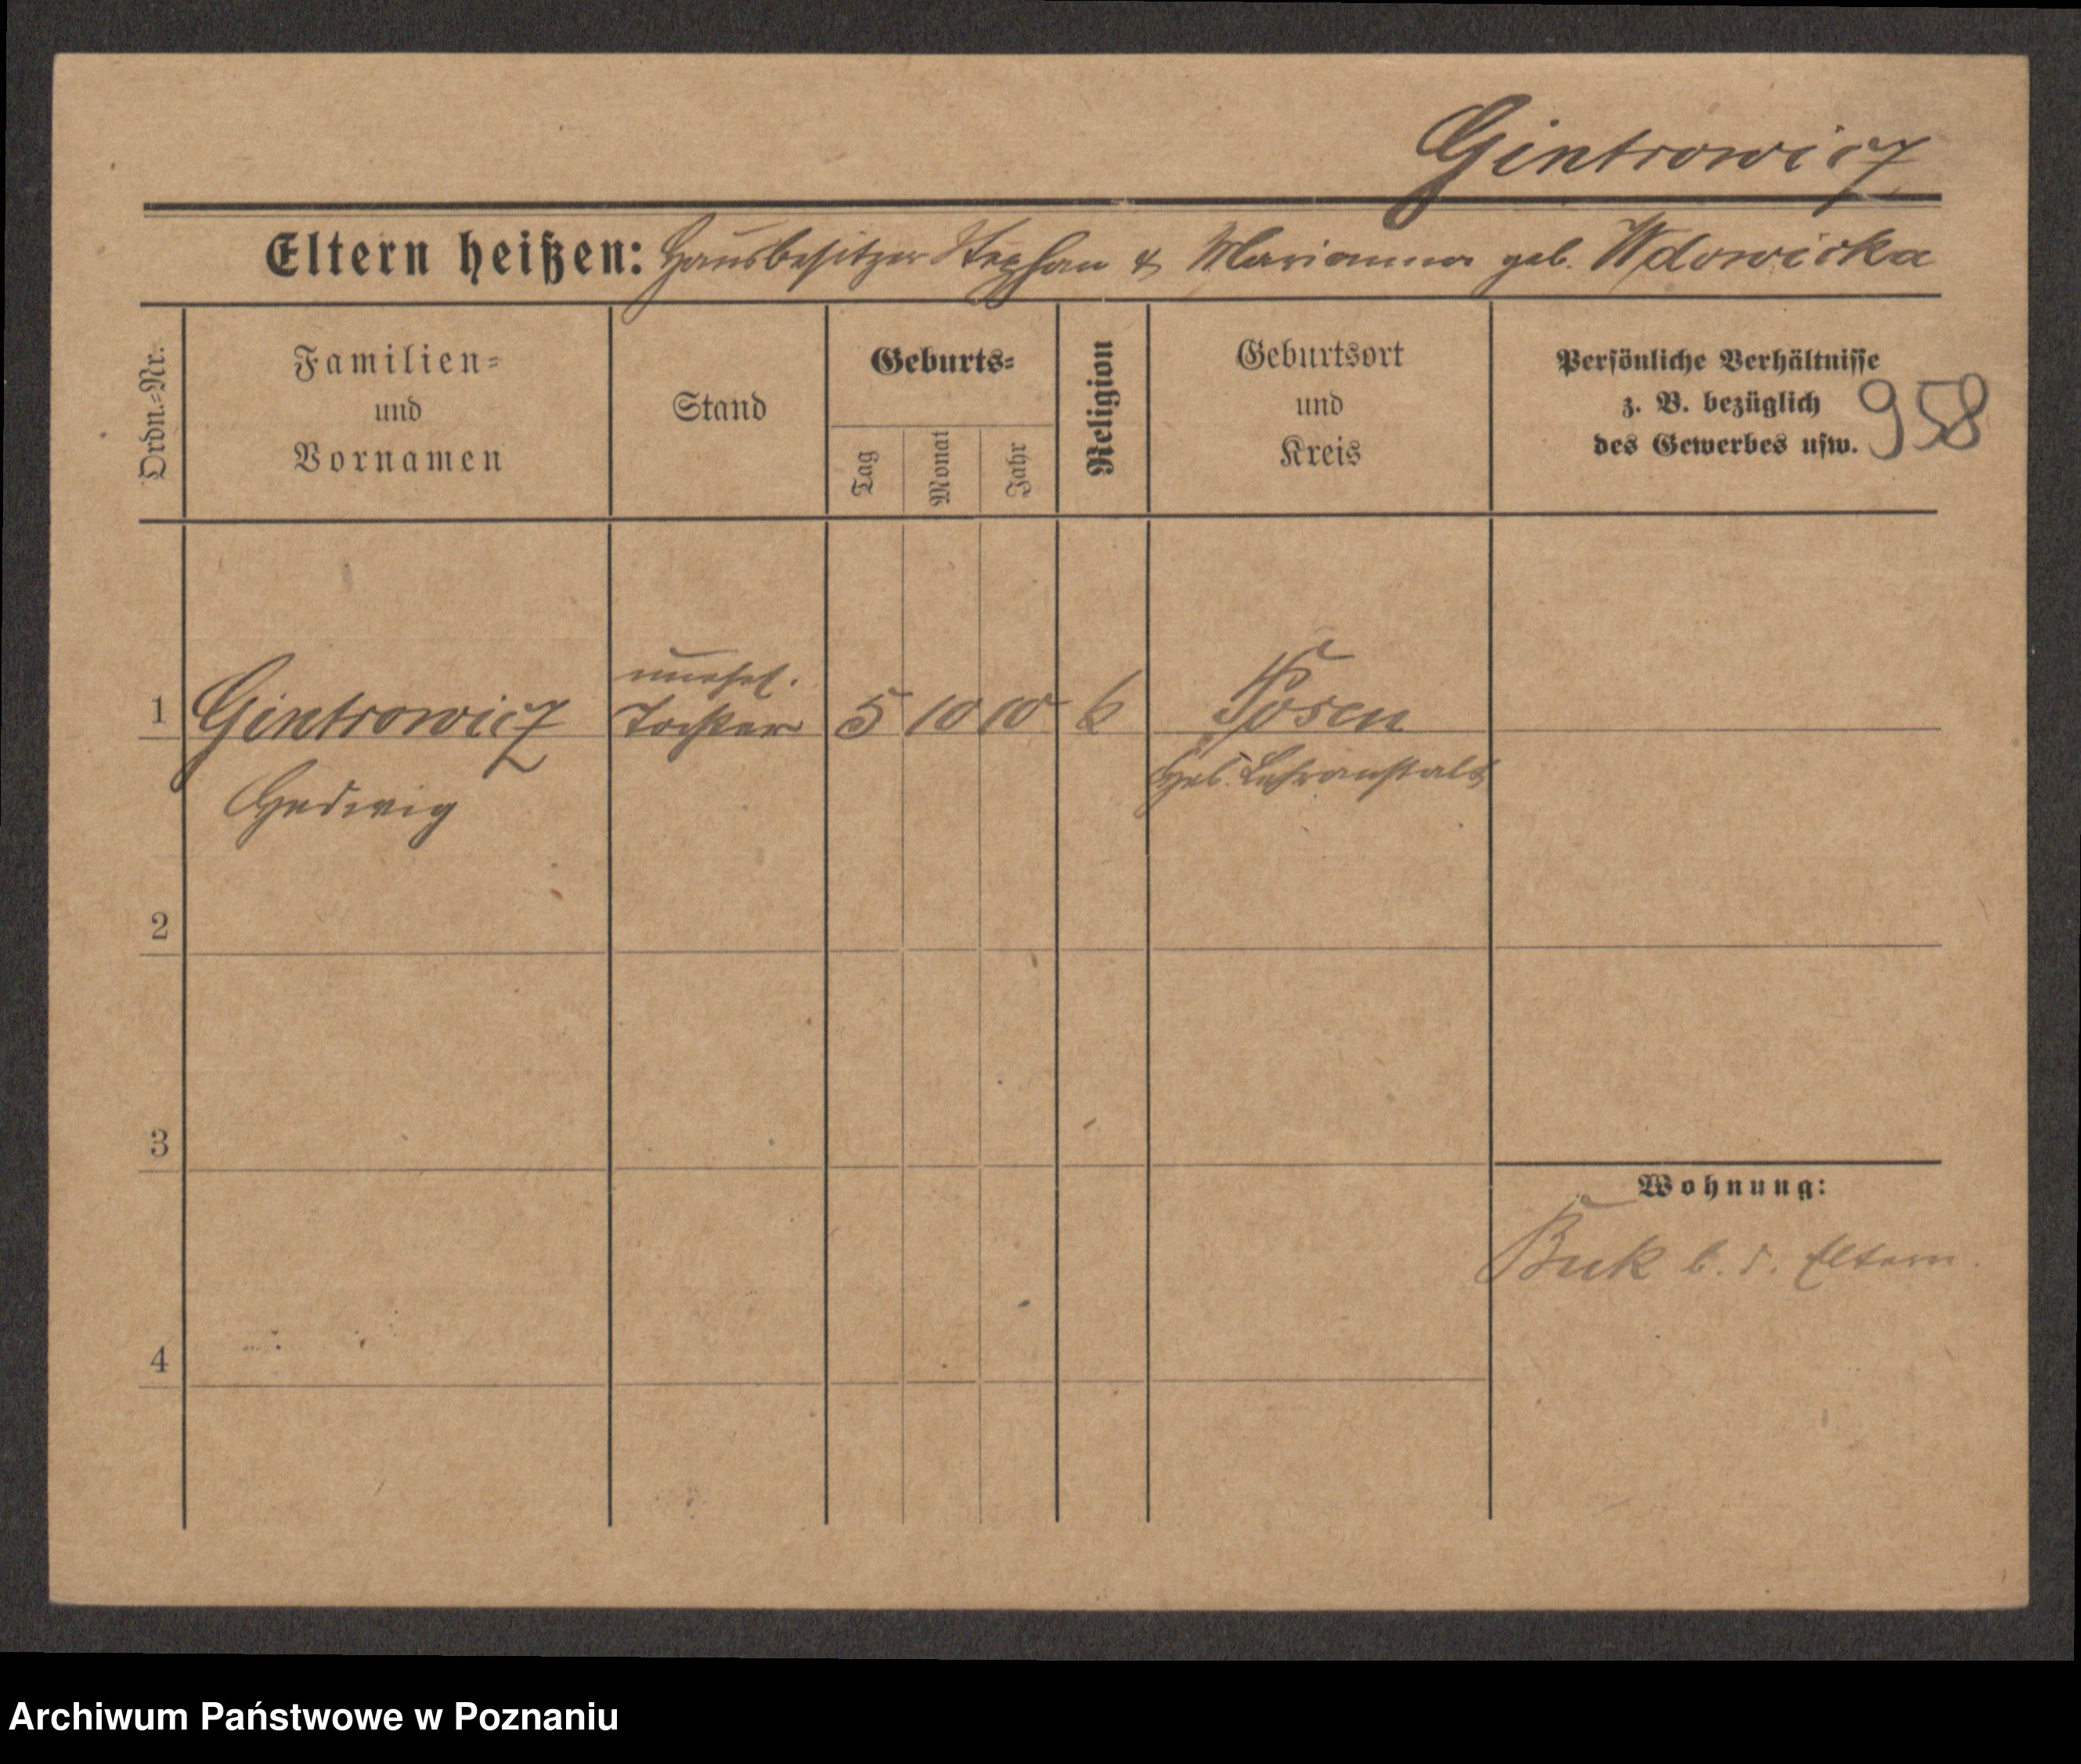 Gintrowicz
Eltern heißen: Hausbesitzer Stephan & Marianna geb. Wdowicka
Ordn.-Nr.
Familien-
und
Vornamen
Stand
Geburts-
Tag
Monat
Jahr
Religion
Geburtsort
und
Kreis
Persönliche Verhältnisse
z. B. bezüglich
des Gewerbes usw.
958
unehel.
1 Gintrowicz Tochter 5 10 10 k Posen
Hedwig
Heb. Lehranstalt
2
3
Wohnung:
Buk b. d. Eltern.
4
Archiwum Państwowe w Poznaniu